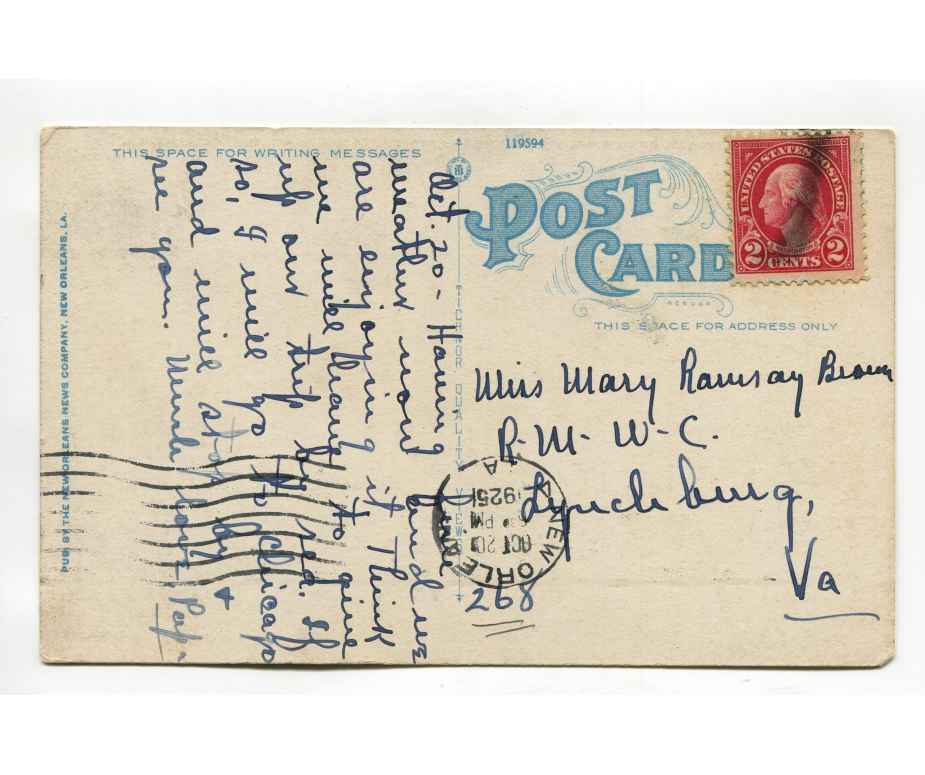 THIS SPACE FOR WRITING MESSAGES
119594
POST
CARD
UNITED STATES POSTAGE
2 CENTS 2
THIS SPACE FOR ADDRESS ONLY
PUB. BY THE NEW ORLEANS NEWS COMPANY, NEW ORLEANS, LA.
TICHNOR QUALITY VIEWS
Oct. 20 - Having
weather now and we
are enjoying it. Think
we will have to give
up our trip by sea. If
so, I will go to Chicago
and will stop by &
see you. Much love, Pap
Miss Mary Ramsay Brown
R-M-W-C.
Lynchburg,
Va
268
NEW ORLE
OCT 20
PM
1925